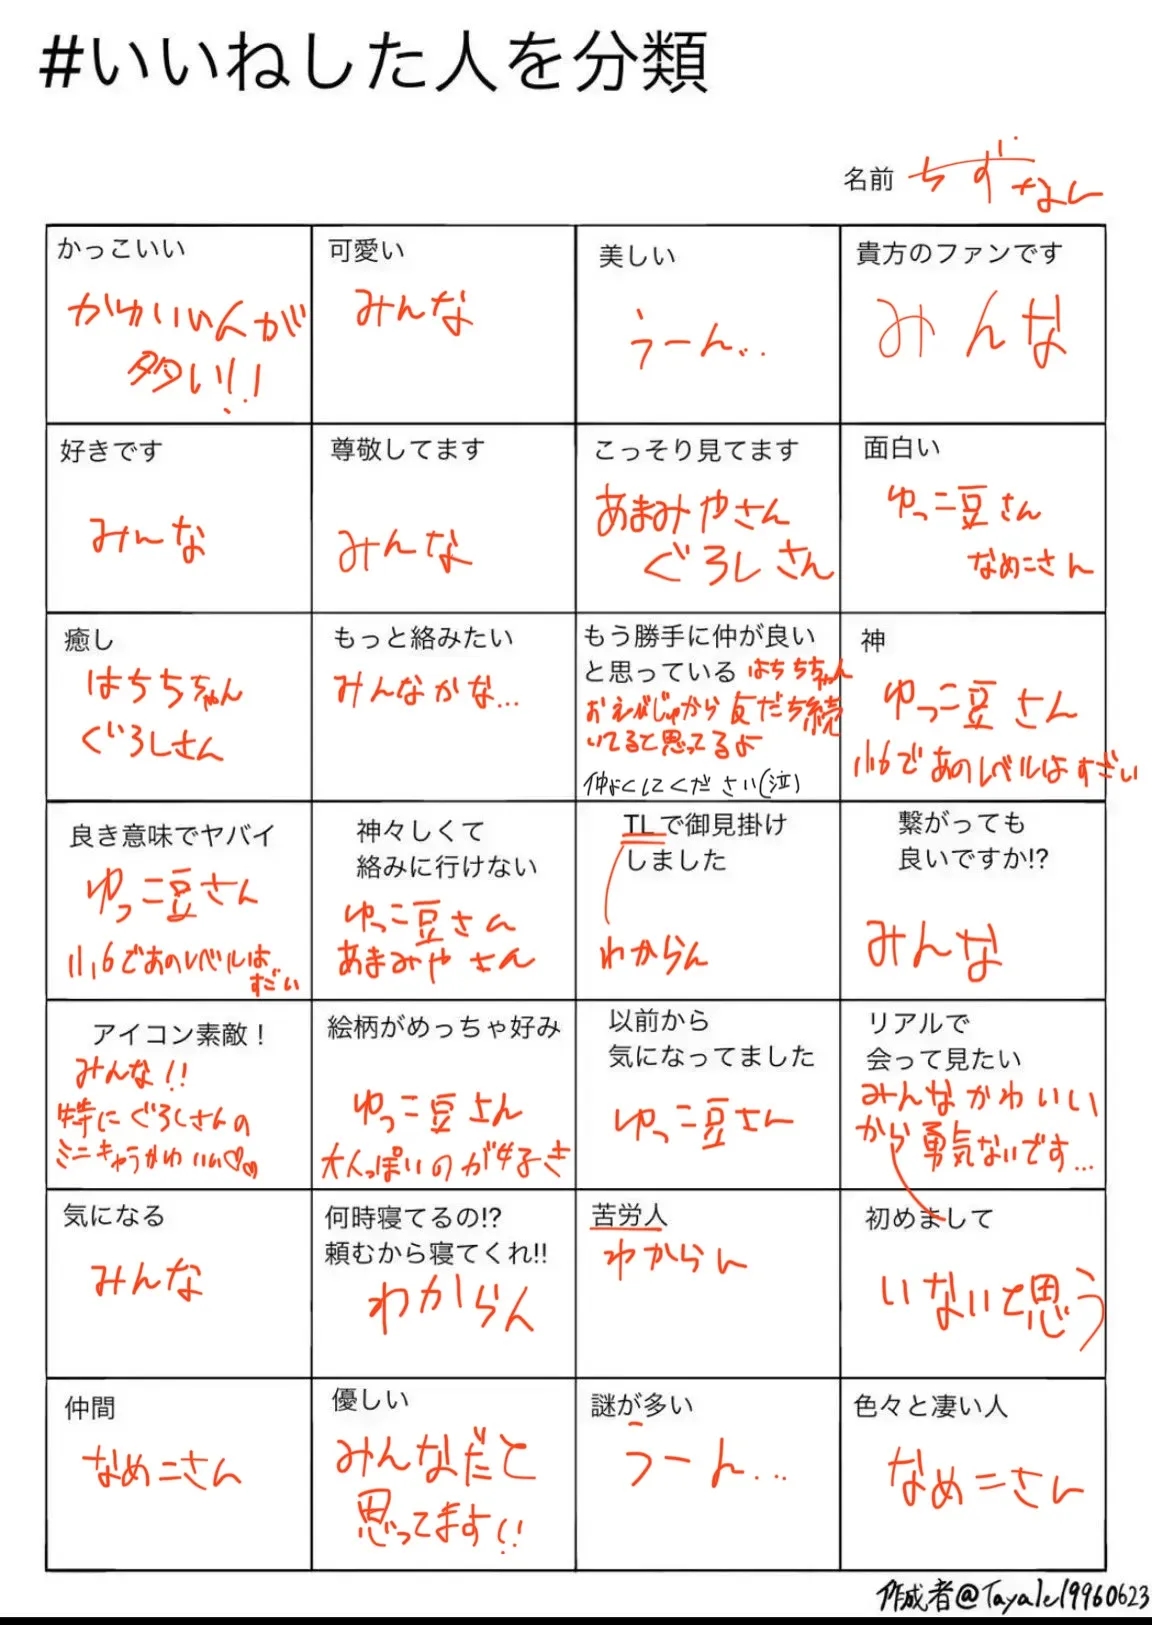 #いいねした人を分類
名前 ちずなし
かっこいい
かわいい人が
多い!!
可愛い
みんな
美しい
うーん...
貴方のファンです
みんな
好きです
みんな
尊敬してます
みんな
こっそり見てます
あまみやさん
ぐろしさん
面白い
ゆっこ豆さん
なめこさん
癒し
はちちちゃん
ぐろしさん
もっと絡みたい
みんなかな...
もう勝手に仲が良い
と思っている はちちちゃん
おえびじゃから友だち続
いてると思ってるよ
仲よくしてください(泣)
神
ゆっこ豆さん
小6であのレベルはすごい
良き意味でヤバイ
ゆっこ豆さん
小6であのレベルは
すごい
神々しくて
絡みに行けない
ゆっこ豆さん
あまみやさん
TLで御見掛け
しました
わからん
繋がっても
良いですか!?
みんな
アイコン素敵!
みんな!!
特にぐろしさんの
ミニキャラかわいい♡♡
絵柄がめっちゃ好み
ゆっこ豆さん
大人っぽいのが好き
以前から
気になってました
ゆっこ豆さん
リアルで
会って見たい
みんなかわいい
から勇気ないです...
気になる
みんな
何時寝てるの!?
頼むから寝てくれ!!
わからん
苦労人
わからん
初めまして
いないと思う
仲間
なめこさん
優しい
みんなだと
思ってます!!
謎が多い
うーん...
色々と凄い人
なめこさん
作成者@Tayale19960623